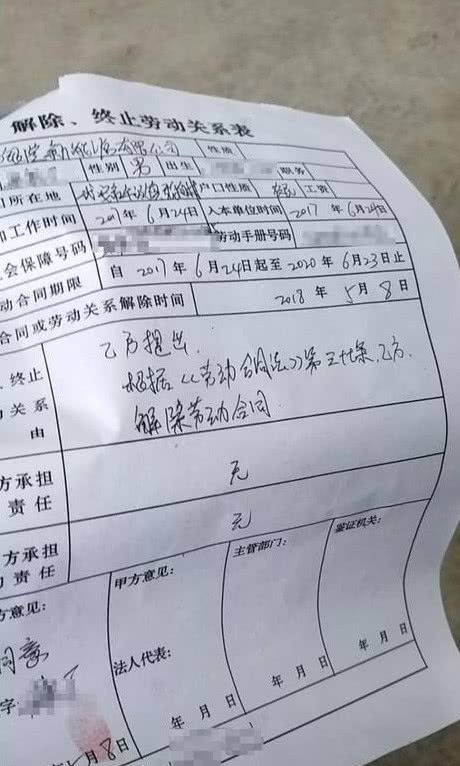 解除、终止劳动关系表
新能源有限公司 性质
性别 男 出生 职务
所在地 户口性质 工资
工作时间 2017年6月24日 入本单位时间 2017年6月24日
会保障号码 劳动手册号码
动合同期限 自 2017年6月24日起至2020年6月23日止
合同或劳动关系解除时间 2018年5月8日
终止
关系
由
乙方提出,
根据《劳动合同法》第三十七条,乙方
解除劳动合同
方承担
责任
无
方承担
责任
无
方意见:
同意
字:
月8日
甲方意见:
法人代表:
年 月 日
主管部门:
年 月 日
鉴证机关:
年 月 日